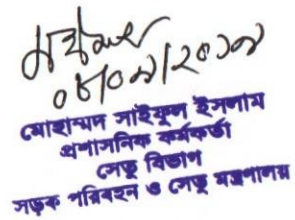 ০৮/০৯/২০১৯
মোহাম্মদ সাইফুল ইসলাম
প্রশাসনিক কর্মকর্তা
সেতু বিভাগ
সড়ক পরিবহন ও সেতু মন্ত্রণালয়